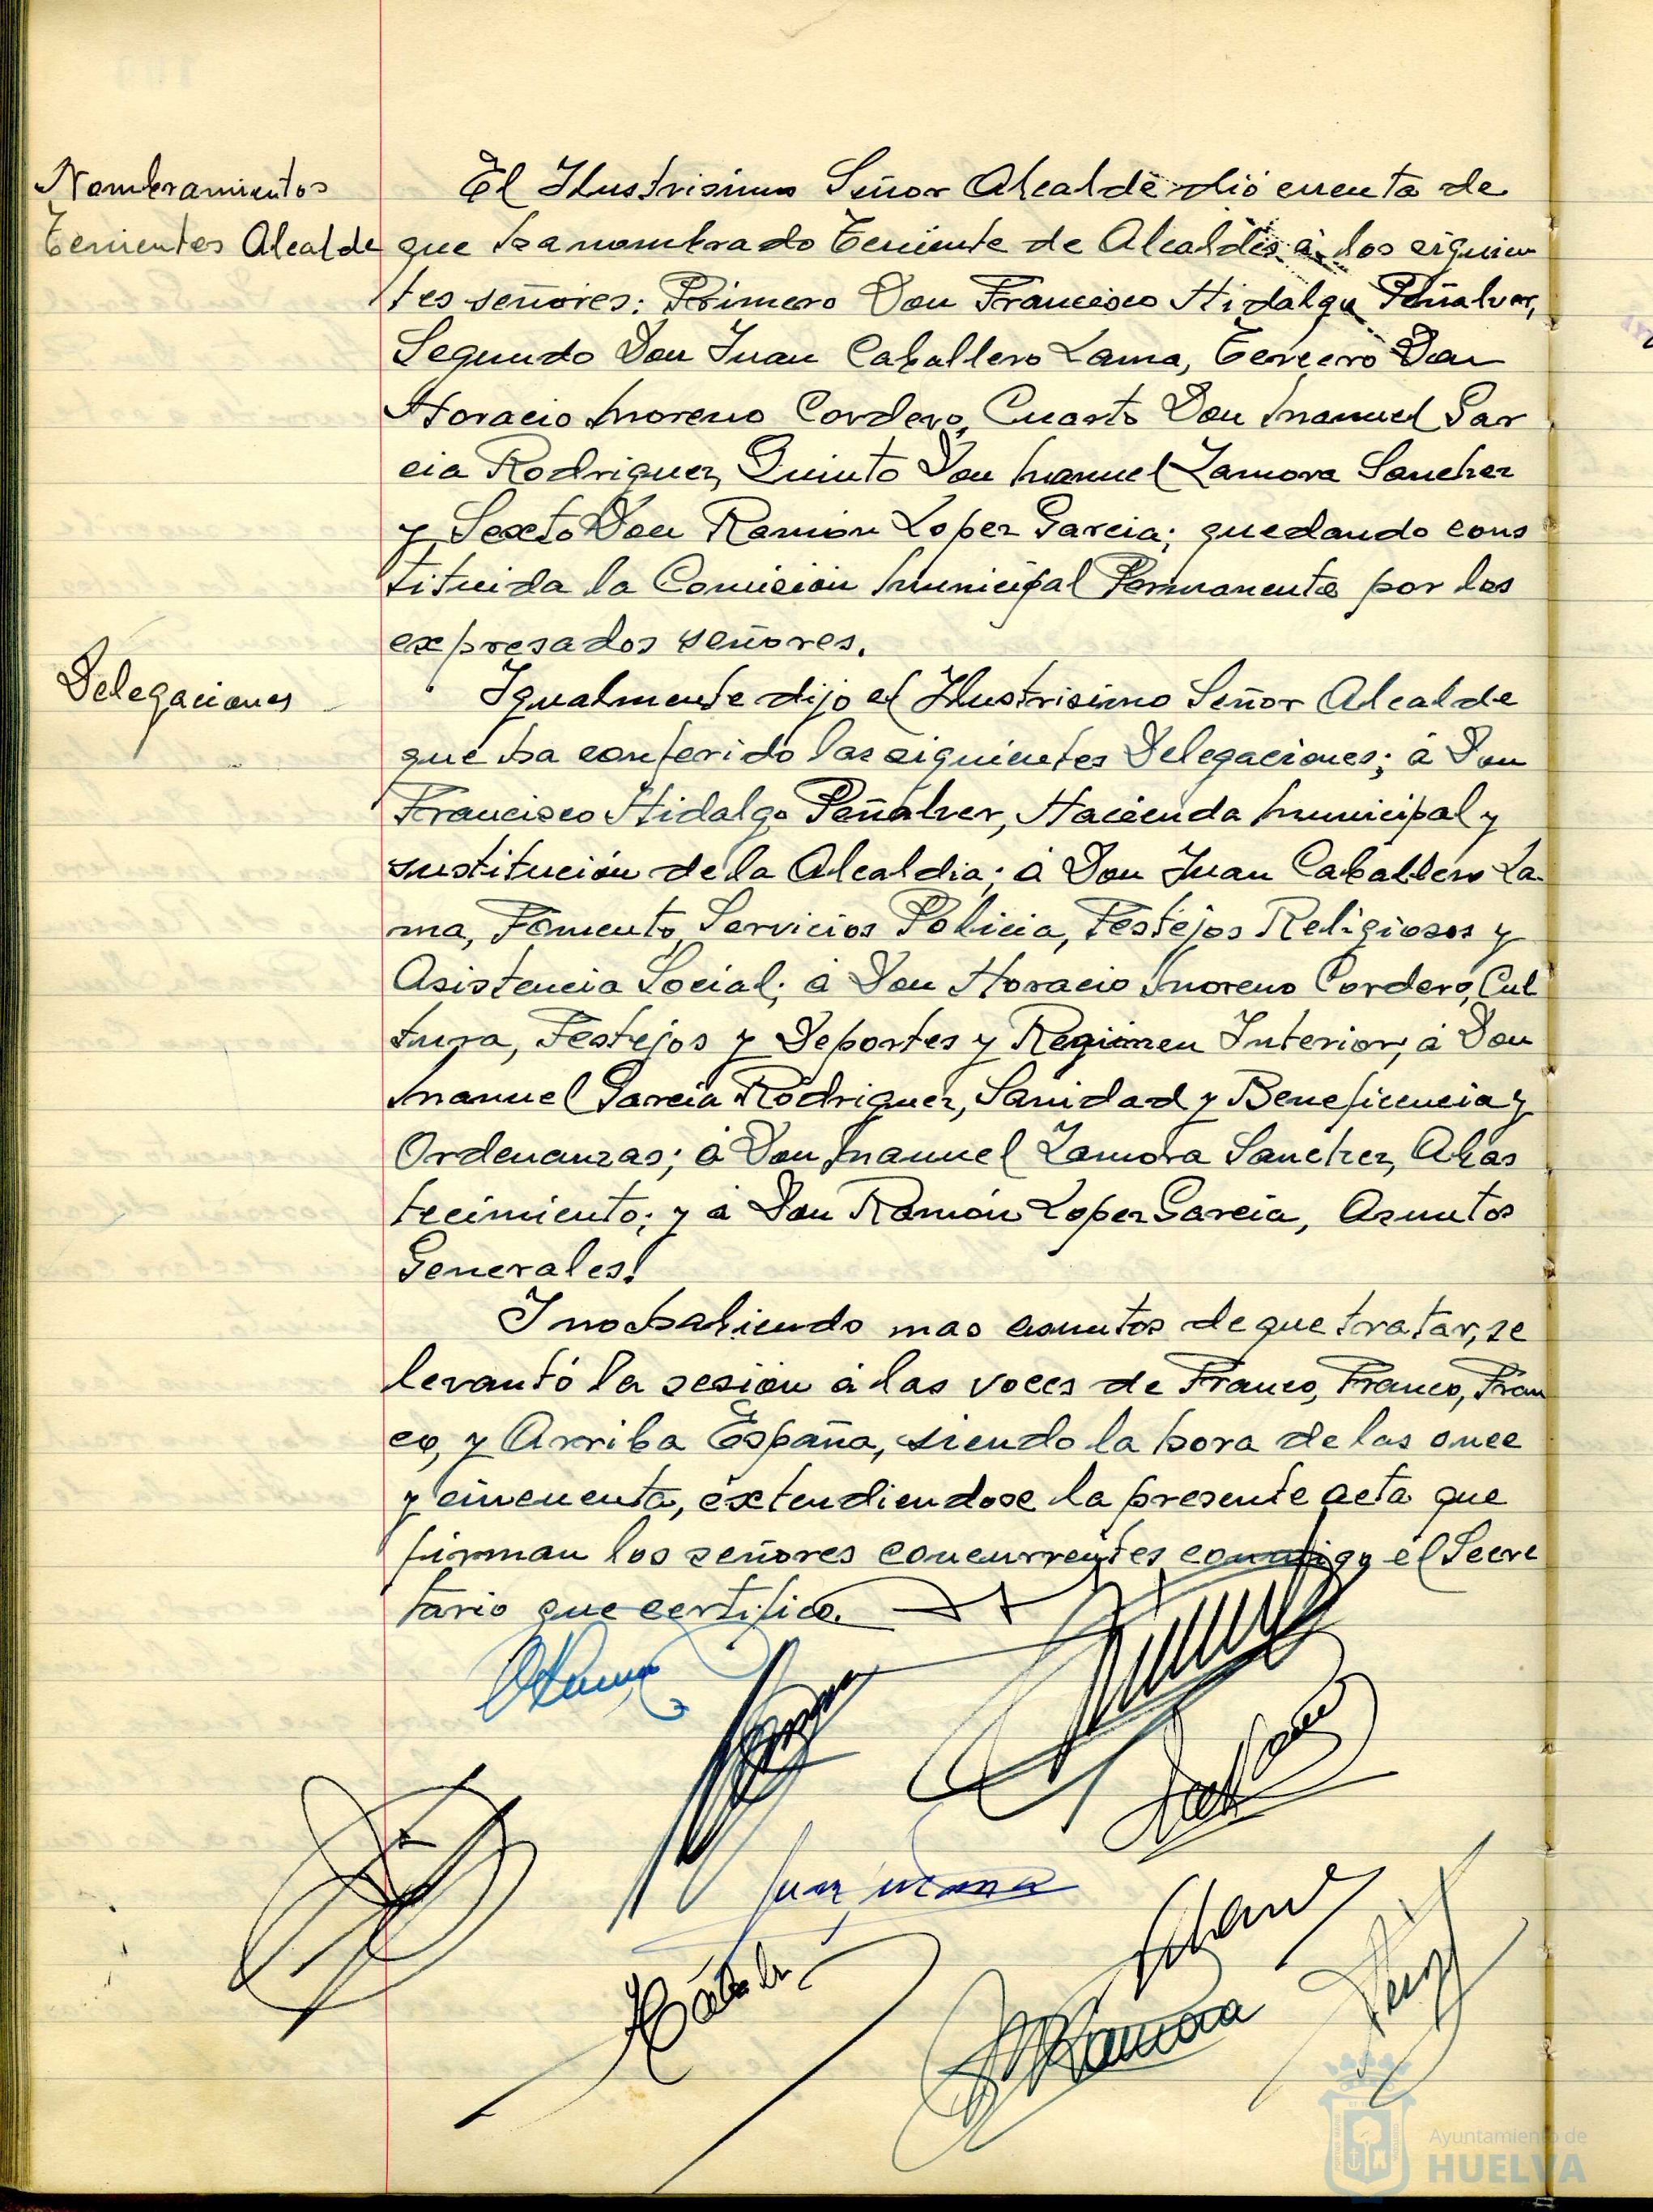 Nombramientos
Tenientes Alcalde
El Ilustrisimo Señor Alcalde dió cuenta de
que ha nombrado Teniente de Alcaldes á los siguien
tes señores: Primero Don Francisco Hidalgo Peñalver,
Segundo Don Juan Caballero Lama, Tercero Don
Horacio Moreno Cordero, Cuarto Don Manuel Gar
cia Rodriguez, Quinto Don Manuel Zamora Sanchez
y Sexto Don Ramón Lopez Garcia; quedando cons
tituida la Comisión Municipal Permanente por los
expresados señores.
Delegaciones
Igualmente dijo el Ilustrisimo Señor Alcalde
que ha conferido las siguientes Delegaciones; á Don
Francisco Hidalgo Peñalver, Hacienda Municipal y
sustitución de la Alcaldia; á Don Juan Caballero La-
ma, Fomento, Servicios Policia, Festejos Religiosos y
Asistencia Social; á Don Horacio Moreno Cordero, Cul
tura, Festejos y Deportes y Regimen Interior; á Don
Manuel Garcia Rodriguez, Sanidad y Beneficencia y
Ordenanzas; á Don Manuel Zamora Sanchez, Abas
tecimiento; y á Don Ramón Lopez Garcia, Asuntos
Generales.
Y no habiendo mas asuntos de que tratar, se
levantó la sesión á las voces de Franco, Franco, Fran
co, y Arriba España, siendo la hora de las once
y cincuenta, extendiendose la presente acta que
firman los señores concurrentes conmigo el Secre
tario que certifico.
Juan
Zamora
Ayuntamiento de
HUELVA